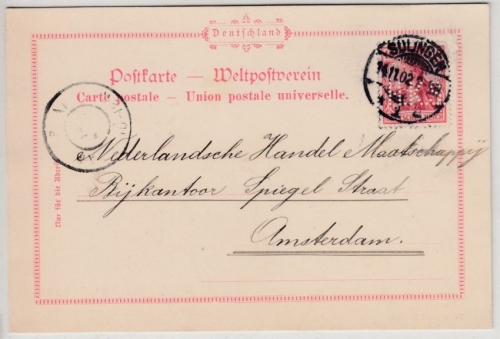 Deutschland
Postkarte — Weltpostverein
Carte postale — Union postale universelle.
SOLINGEN
14.11.02
Nederlandsche Handel Maatschappij
Bijkantoor Spiegel Straat
Amsterdam.
Nur für die